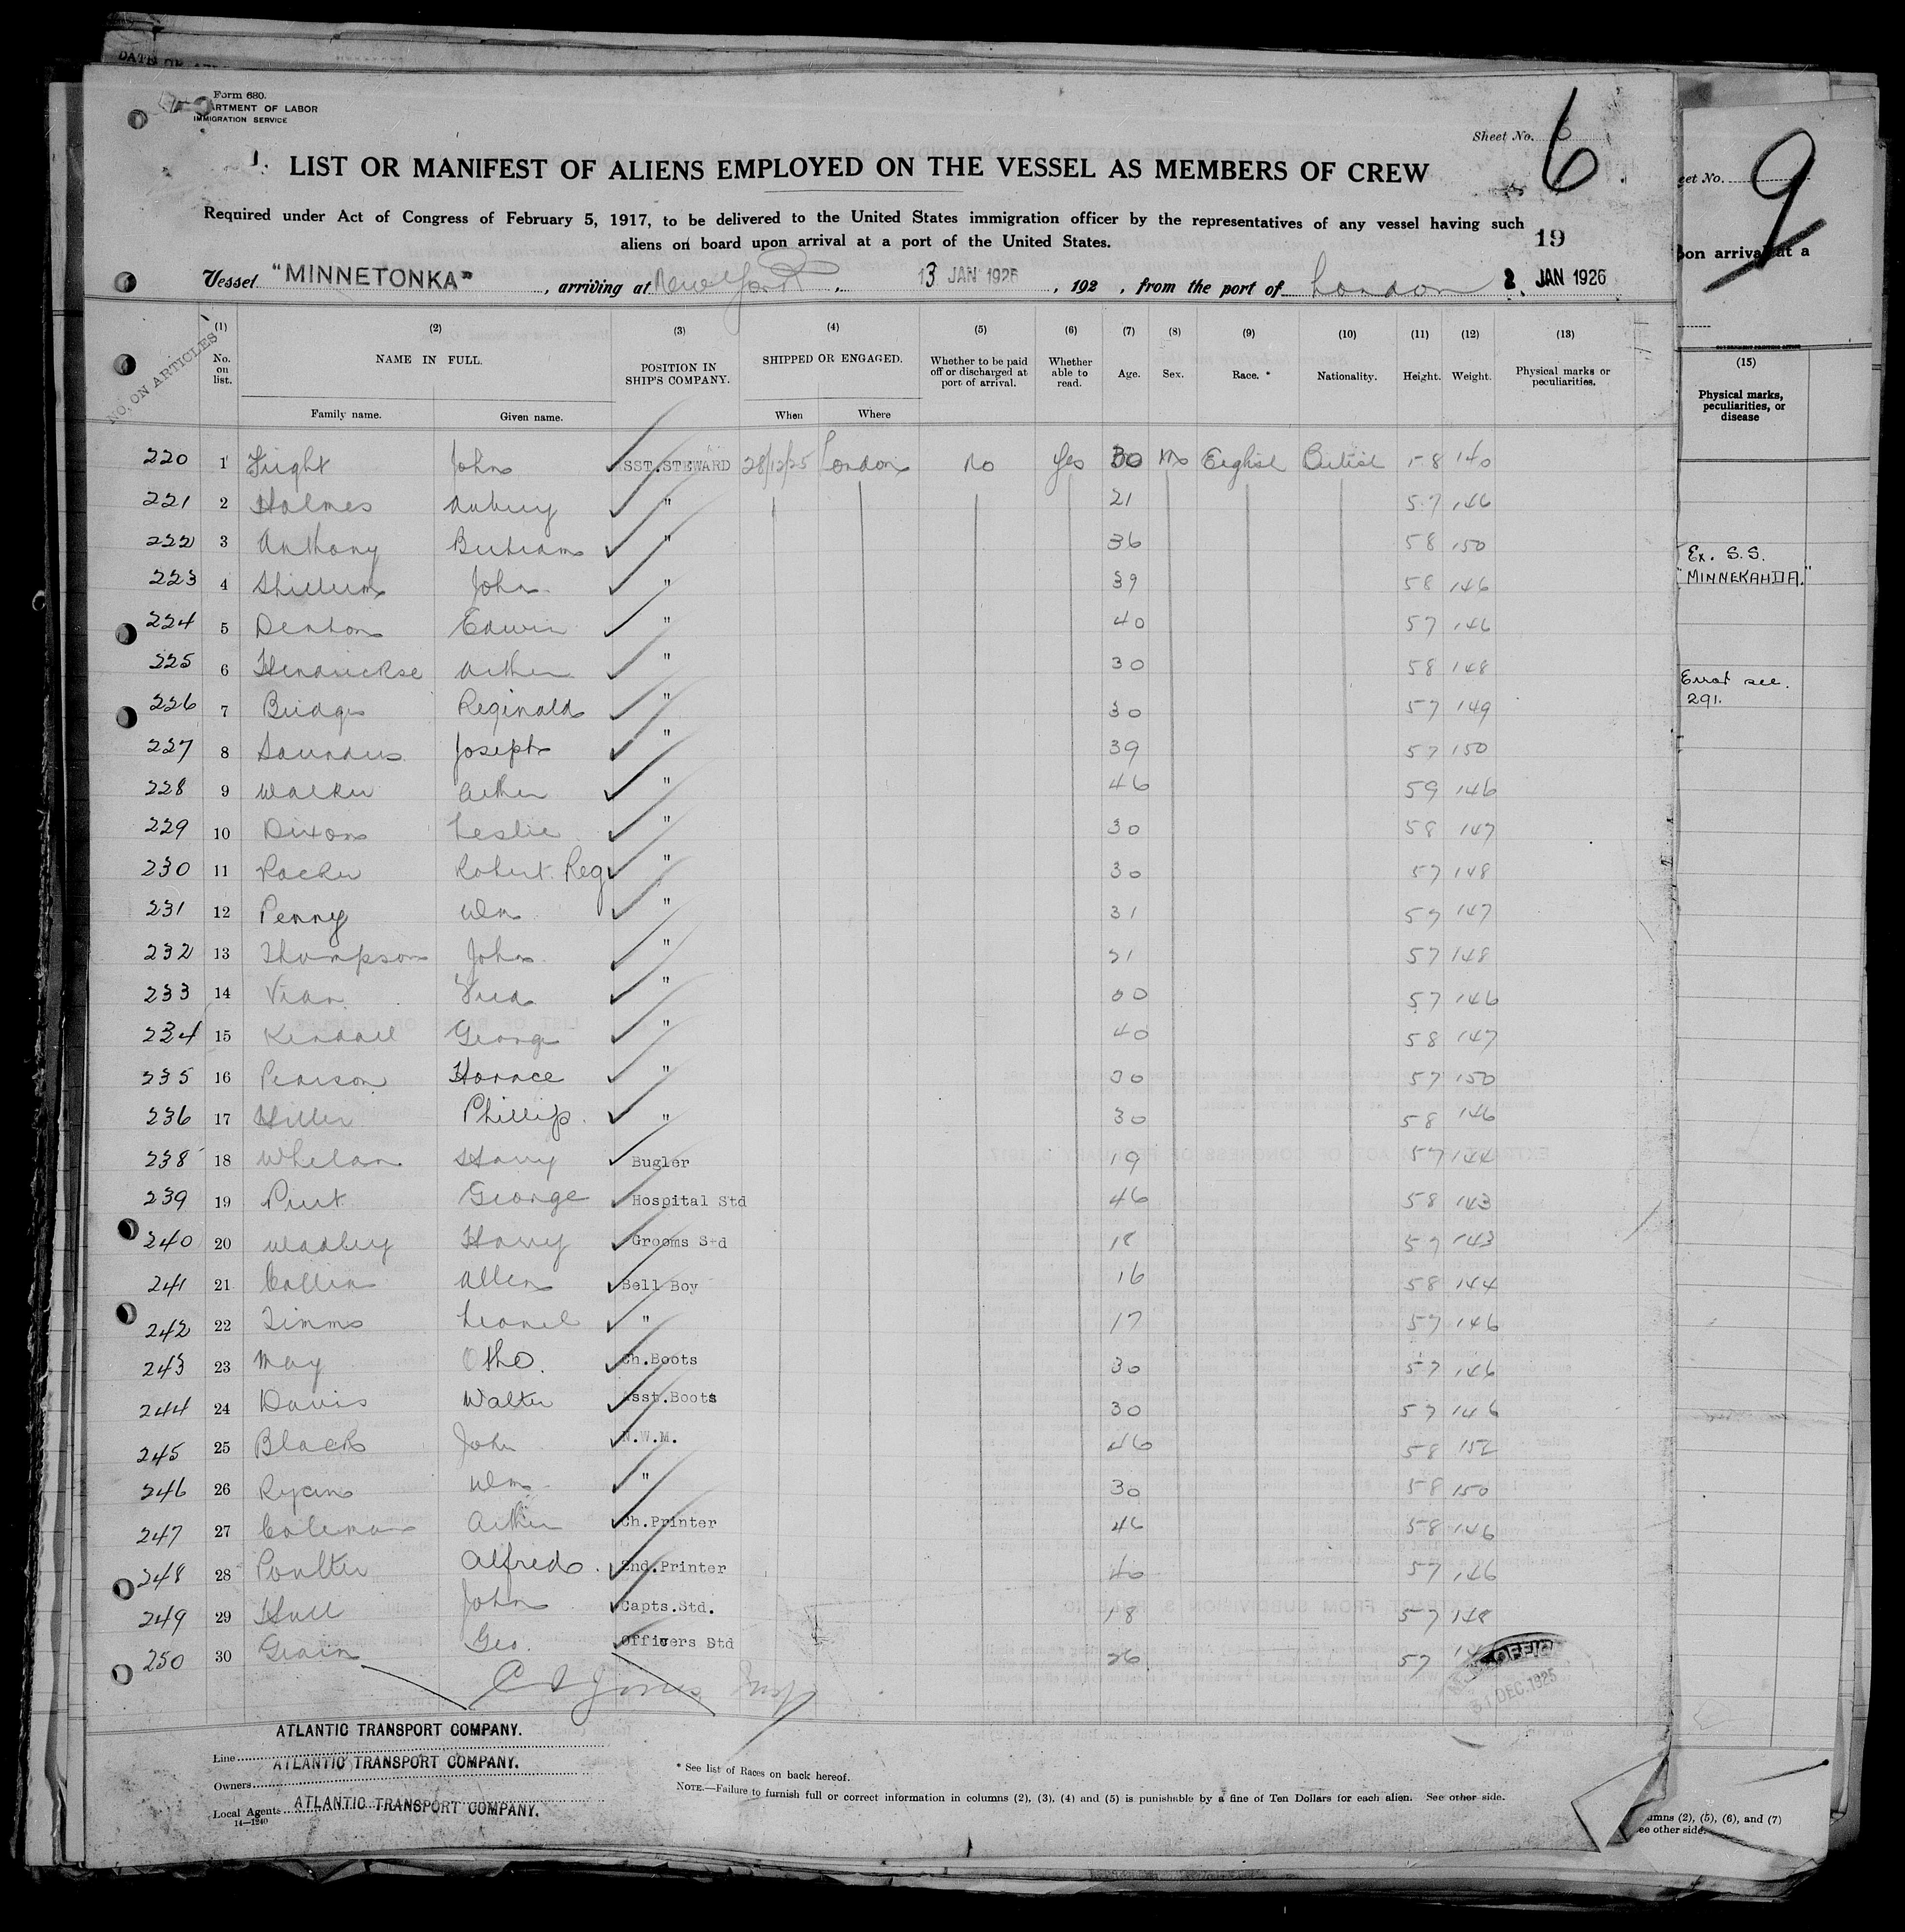 DATE OF
Form 680.
ARTMENT OF LABOR
IMMIGRATION SERVICE
Sheet No. 6
6
LIST OR MANIFEST OF ALIENS EMPLOYED ON THE VESSEL AS MEMBERS OF CREW
Required under Act of Congress of February 5, 1917, to be delivered to the United States immigration officer by the representatives of any vessel having such
aliens on board upon arrival at a port of the United States.
19
Vessel "MINNETONKA", arriving at New York, 13 JAN 1926, 192 , from the port of London 2. JAN 1926
NO. ON ARTICLES
(1) (2) (3) (4) (5) (6) (7) (8) (9) (10) (11) (12) (13)
No. on list. NAME IN FULL. POSITION IN SHIP'S COMPANY. SHIPPED OR ENGAGED. Whether to be paid off or discharged at port of arrival. Whether able to read. Age. Sex. Race. * Nationality. Height. Weight. Physical marks or peculiarities.
Family name. Given name. When Where
220 1 John ASST.STEWARD 28/12/25 London No Yes 30 M English British 5 8 140
221 2 Holmes Aubrey " 21 5 7 146
222 3 Anthony Bertram " 36 5 8 150
223 4 John " 39 5 8 146
224 5 Denton Edwin " 40 5 7 146
225 6 Hendrickse Arthur " 30 5 8 148
226 7 Bridge Reginald " 30 5 7 149
227 8 Saunders Joseph " 39 5 7 150
228 9 Walker Arthur " 46 5 9 146
229 10 Dixon Leslie " 30 5 8 147
230 11 Robert Reg " 30 5 7 148
231 12 Penny Wm " 31 5 7 147
232 13 Thompson John " 21 5 7 148
233 14 Vian Fred " 5 7 146
234 15 Kendall George " 40 5 8 147
235 16 Pearson Horace " 30 5 7 150
236 17 Hiller Phillip " 30 5 8 146
238 18 Whelan Harry Bugler 19 5 7 144
239 19 George Hospital Std 46 5 8 143
240 20 Harry Grooms Std 18 5 7 143
241 21 Allen Bell Boy 16 5 8 144
242 22 Timms Leonel " 17 5 7 146
243 23 May Otho. Ch.Boots 30 5 7 146
244 24 Davis Walter Asst.Boots 30 5 7 146
245 25 Black John N.W.M. 46 5 8 152
246 26 Wm " 30 5 8 150
247 27 Coleman Arthur Ch.Printer 46 5 8 146
248 28 Poulter Alfred. 2nd.Printer 40 5 7 146
249 29 Hull John Capts.Std. 18 5 7 148
250 30 Geo. Officers Std 26 5 7
OFFIC
31 DEC.1925
Line ATLANTIC TRANSPORT COMPANY.
Owners ATLANTIC TRANSPORT COMPANY.
Local Agents ATLANTIC TRANSPORT COMPANY.
14—1240
* See list of Races on back hereof.
NOTE.—Failure to furnish full or correct information in columns (2), (3), (4) and (5) is punishable by a fine of Ten Dollars for each alien. See other side.
eet No.
9
pon arrival at a
GOVERNMENT PRINTING OFFICE
(15)
Physical marks,
peculiarities, or
disease
Ex. S.S.
"MINNEKAHDA."
Error see.
291.
umns (2), (5), (6), and (7)
ee other side.